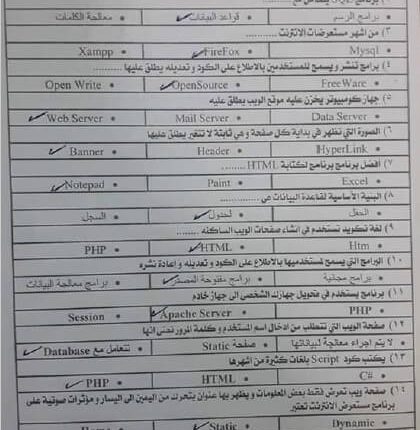 • برامج الرسم • قواعد البيانات • معالجة الكلمات
٣) من أشهر مستعرضات الانترنت...........
Mysql • FireFox • Xampp •
٤) برامج تنشر ويسمح للمستخدمين بالاطلاع على الكود وتعديله يطلق عليها........
FreeWare • OpenSource • Open Write •
٥) جهاز كمبيوتر يخزن عليه موقع الويب يطلق عليه
Data Server • Mail Server • Web Server •
٦) الصورة التي تظهر في بداية كل صفحة وهي ثابتة لا تتغير يطلق عليها
HyperLink • Header • Banner •
٧) أفضل برنامج لكتابة HTML..........
Excel • Paint • Notepad •
٨) البنية الأساسية لقاعدة البيانات هي...........
• الحقل • الجدول • السجل
٩) لغة تكويد تستخدم في انشاء صفحات الويب الساكنه
Htm • HTML • PHP •
١٠) البرامج التي يسمح لمستخدميها بالاطلاع على الكود و تعديله و اعادة نشره
• برامج مجانية • برامج مفتوحة المصدر • برامج معالجة البيانات
١١) برنامج يستخدم في تحويل جهازك الشخصى الى جهاز خادم
PHP • Apache Server • Session •
١٢) صفحة الويب التي تتطلب من ادخال اسم المستخدم و كلمة المرور نعنى انها
• لا يتم اجراء معالجة لبياناتها • صفحة Static • تتعامل مع Database
١٣) يكتب كود Script بلغات كثيرة من اشهرها
C# • HTML • PHP •
١٤) صفحة ويب تعرض فقط بعض المعلومات و يظهر بها عنوان يتحرك من اليمين الى اليسار و مؤثرات صوتية على
برنامج مستعرض الانترنت تعتبر
Dynamic • Static •